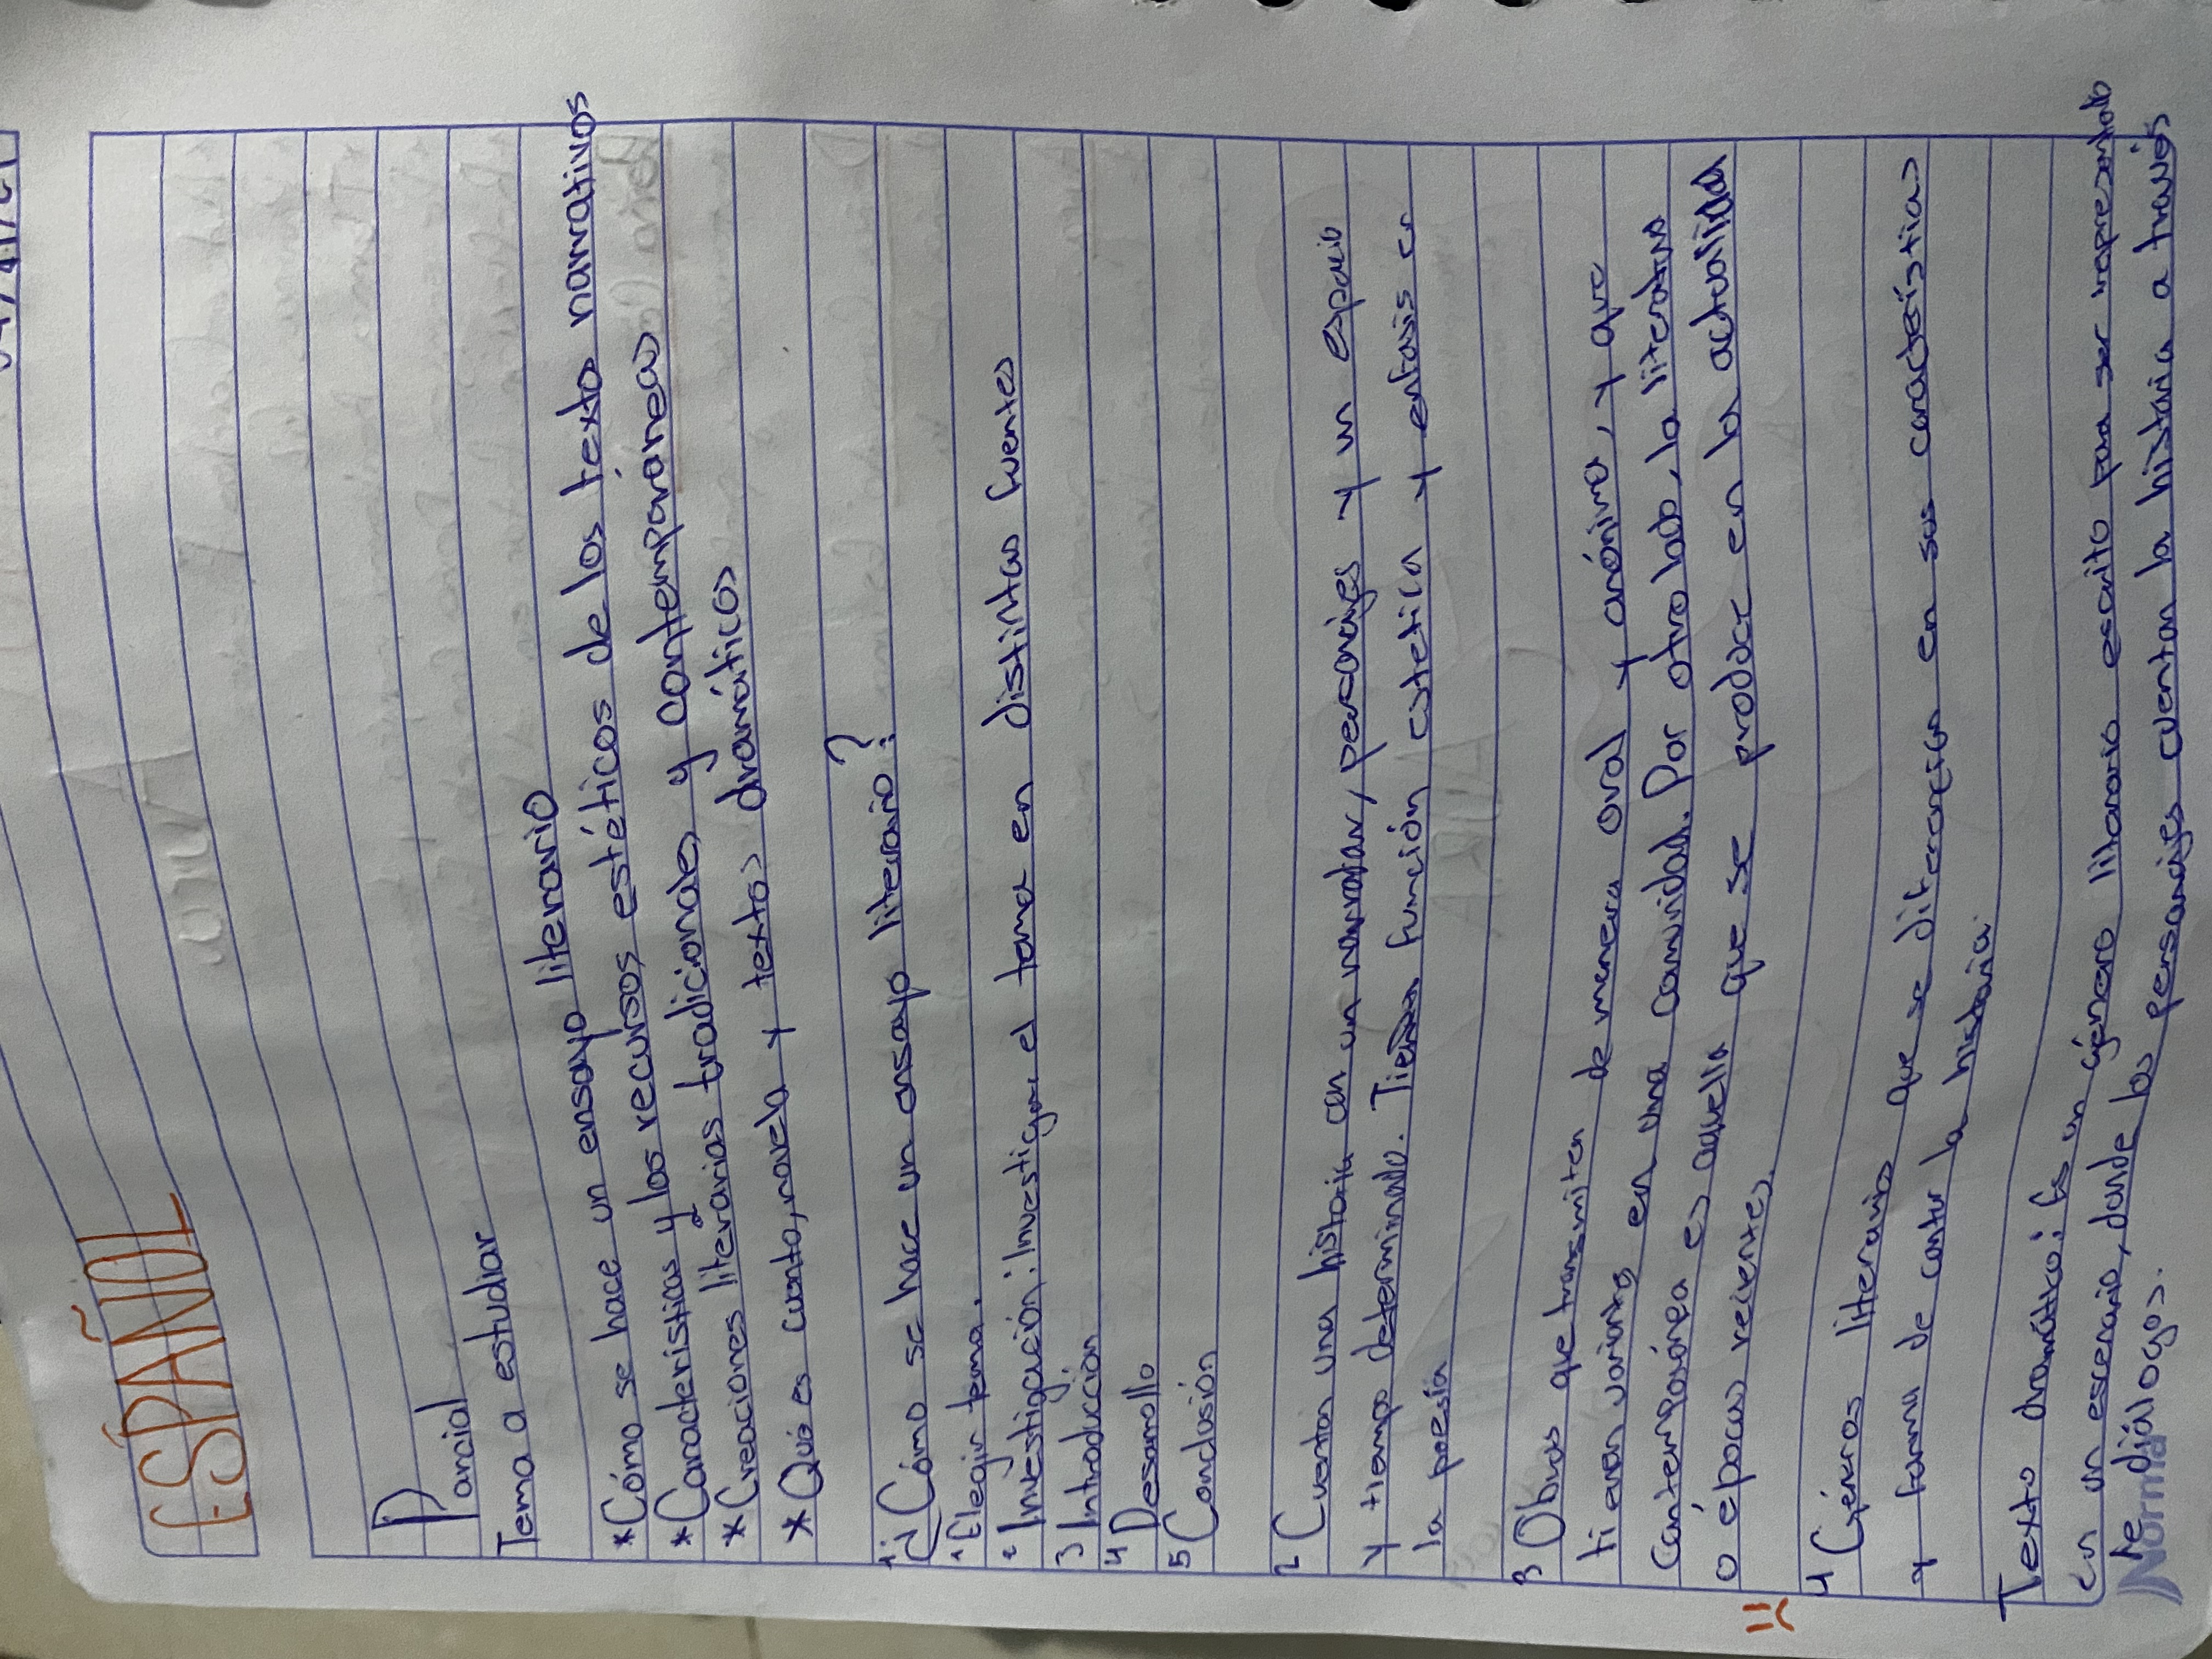 ESPAÑOL
Parcial
Tema a estudiar
*Cómo se hace un ensayo literario
*Caracteristicas y los recursos estéticos de los texto narrativos
*Creaciones literarias tradicionales y contemporáneas
*Qué es cuento, novela y textos dramáticos
1. ¿Cómo se hace un ensayo literario?
1 Elegir tema.
2 Investigación: Investigar el tema en distintas fuentes
3 Introducción
4 Desarrollo
5 Conclusión
2 Cuentan una historia con un narrador, personajes y un espacio
y tiempo determinado. Tienen función estetica y enfasis en
la poesía
3 Obras que transmiten de manera oral y anónima, y que
tienen variantes en una comunidad. Por otro lado, la literatura
contemporánea es aquella que se produce en la actualidad
o épocas recientes.
4 Géneros literarios que se diferencian en sus características
y forma de contar la historia.
Texto dramático: Es un género literario escrito para ser representado
en un escenario, donde los personajes cuentan la historia a través
de diálogos.
Norma